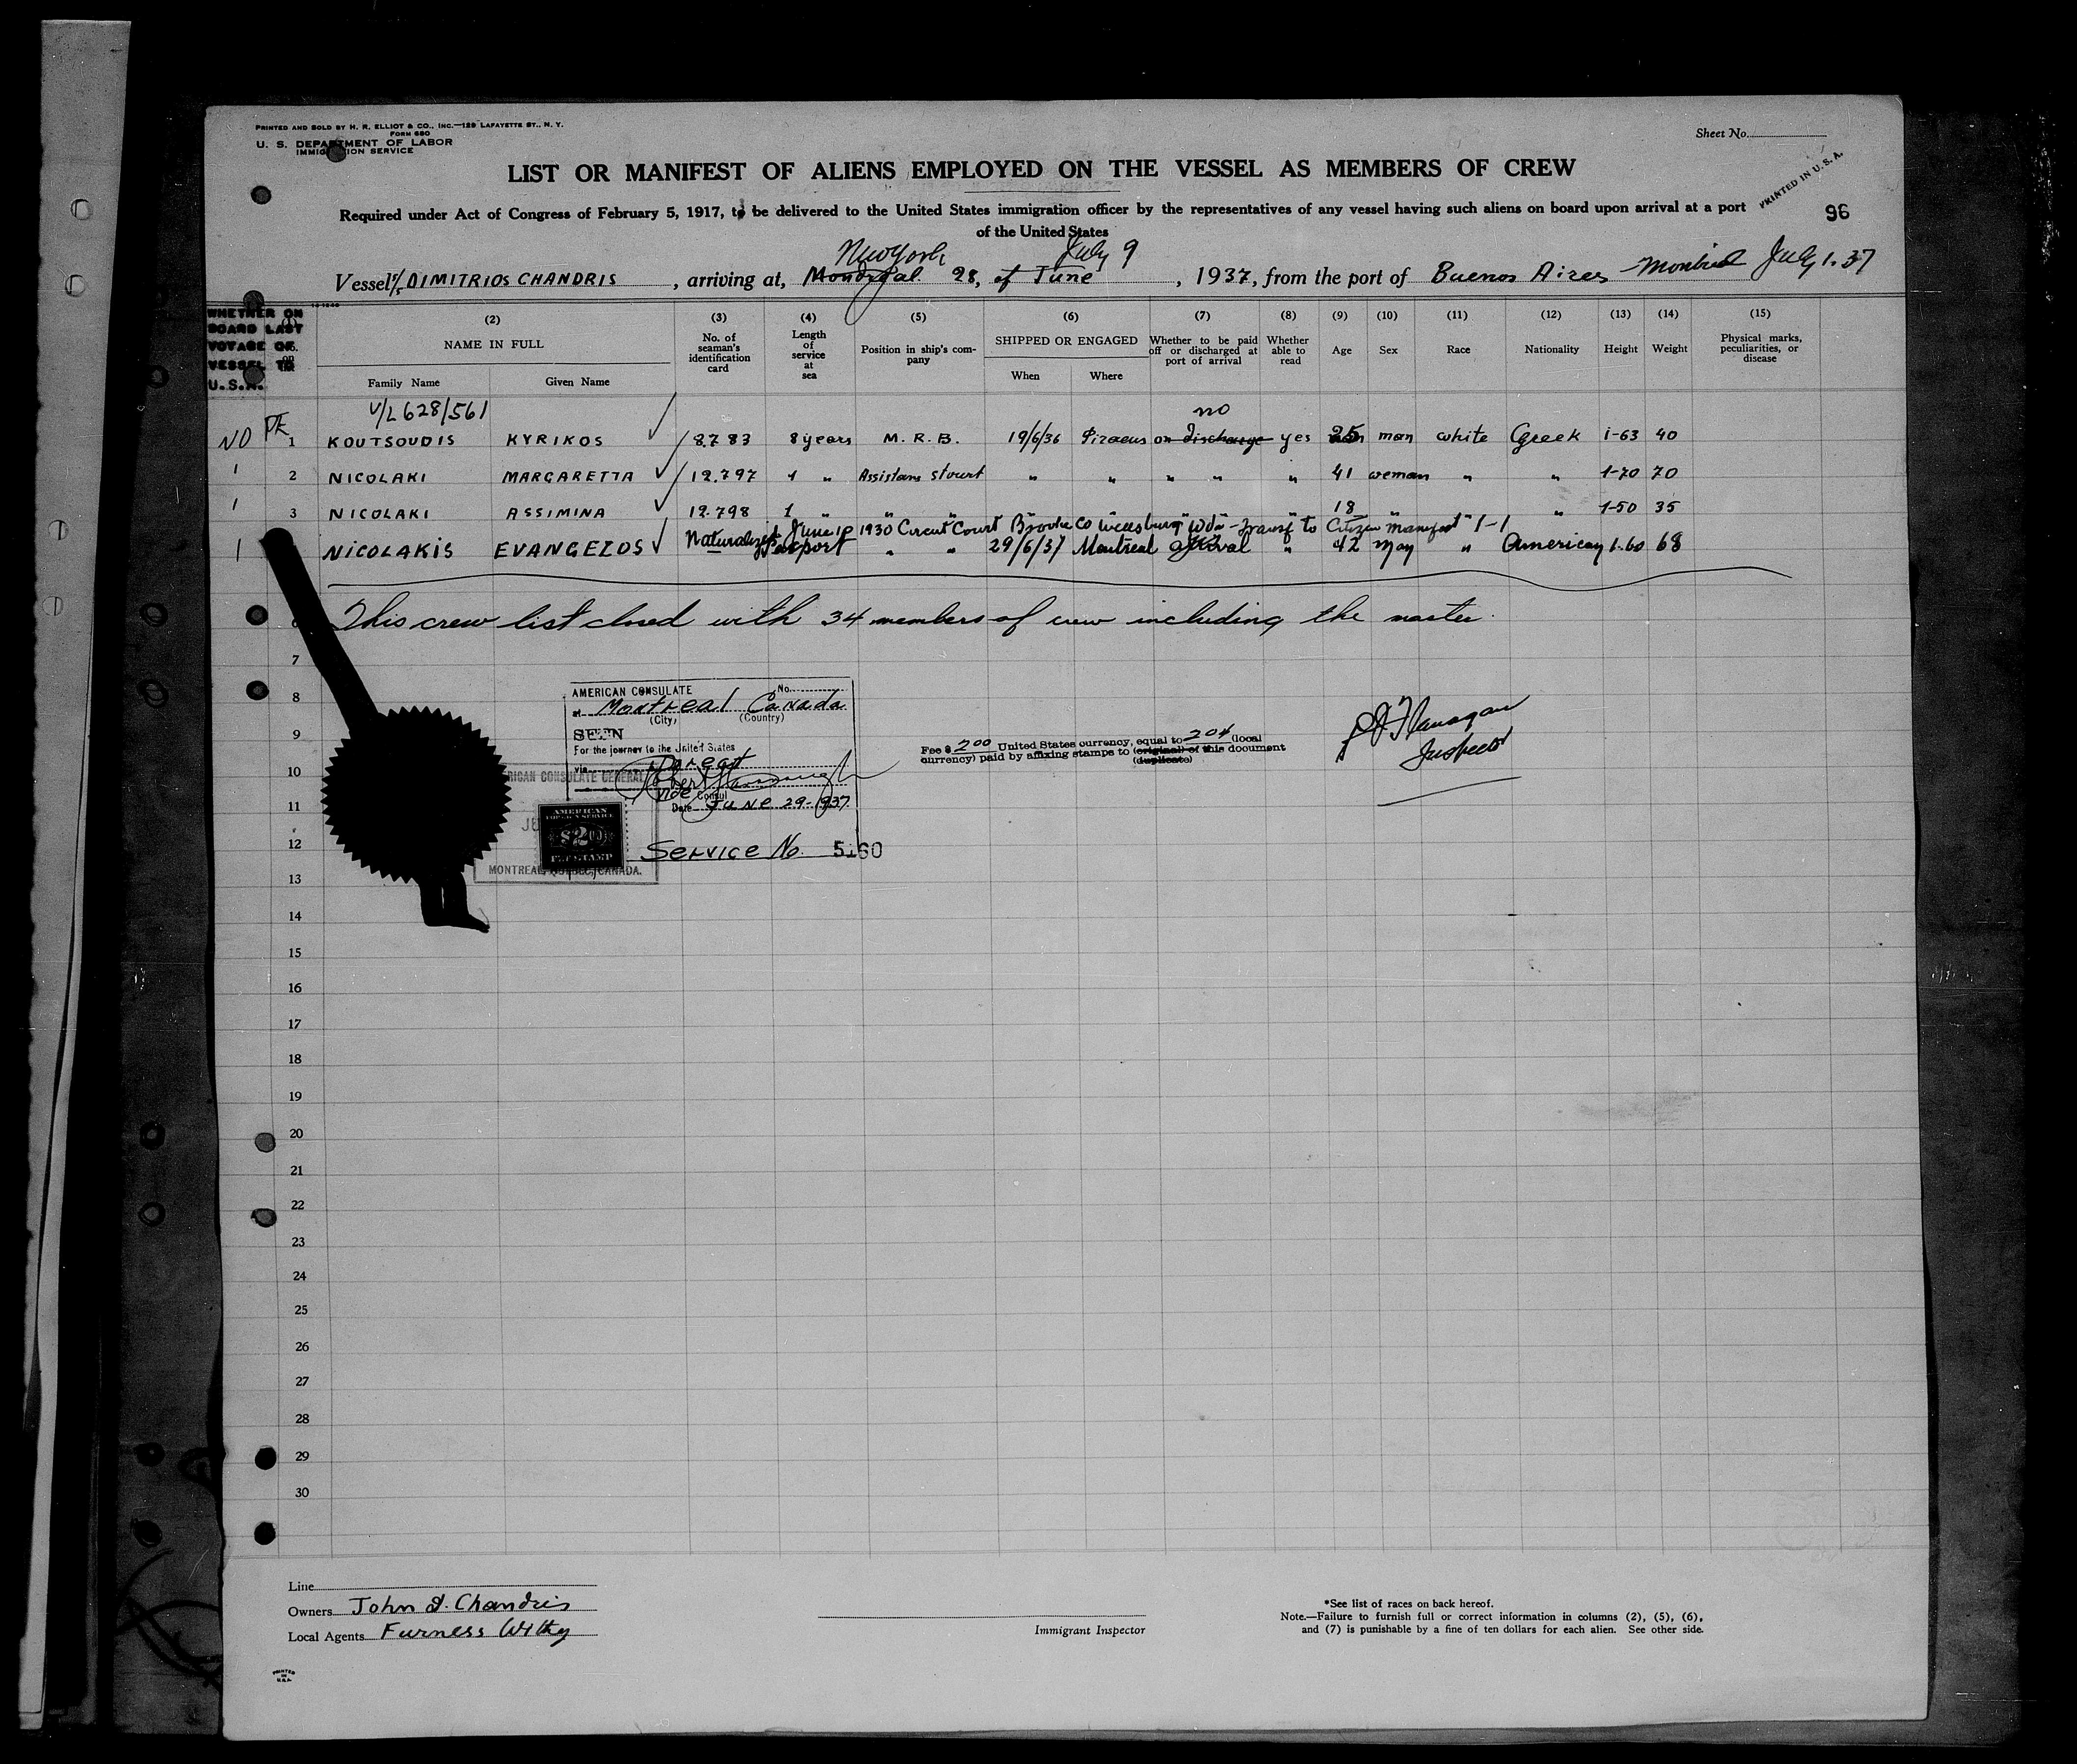 PRINTED AND SOLD BY H. R. ELLIOT & CO., INC.—129 LAFAYETTE ST., N. Y.
FORM 680
U. S. DEPARTMENT OF LABOR
IMMIGRATION SERVICE
Sheet No.
PRINTED IN U.S.A.
LIST OR MANIFEST OF ALIENS EMPLOYED ON THE VESSEL AS MEMBERS OF CREW
96
Required under Act of Congress of February 5, 1917, to be delivered to the United States immigration officer by the representatives of any vessel having such aliens on board upon arrival at a port
of the United States
New York July 9
Vessel s/s DIMITRIOS CHANDRIS, arriving at, Montreal 28, of June, 1937, from the port of Buenos Aires Montreal July 1-37
WHETHER ON BOARD LAST VOYAGE OF VESSEL TO U.S.A.
(2) NAME IN FULL
Family Name Given Name
(3) No. of seaman's identification card
(4) Length of service at sea
(5) Position in ship's company
(6) SHIPPED OR ENGAGED
When Where
(7) Whether to be paid off or discharged at port of arrival
(8) Whether able to read
(9) Age
(10) Sex
(11) Race
(12) Nationality
(13) Height
(14) Weight
(15) Physical marks, peculiarities, or disease
V/L 628/561 no
NO PE 1 KOUTSOUDIS KYRIKOS 8783 8 years M. R. B. 19/6/36 Piraeus on discharge yes 25 man white Greek 1-63 40
1 2 NICOLAKI MARGARETTA 12.797 1 " Assistans stourt " " " " " 41 weman " " 1-70 70
1 3 NICOLAKI ASSIMINA 12.798 1 " " " " " " " " 18 " " " 1-50 35
Naturalized June 12 1930 Circuit Court Brooke Co Wellsburg W.Va - Transf to Citizen manifest 1-1
1 NICOLAKIS EVANGELOS passport " " 29/6/37 Montreal " 42 Man " American 1-60 68
This crew list closed with 34 members of crew including the master.
7
8
9
10
11
12
13
14
15
16
17
18
19
20
21
22
23
24
25
26
27
28
29
30
AMERICAN CONSULATE No.
at Montreal Canada
(City) (Country)
SEEN
For the journey to the United States
via Direct
AMERICAN CONSULATE GENERAL
Vice Consul
Date June 29-1937
AMERICAN
FOREIGN SERVICE
$2.00
FEE STAMP
Service No. 5160
MONTREAL, QUEBEC, CANADA.
Fee $ 2.00 United States currency, equal to 2.04 (local
currency) paid by affixing stamps to (original) of this document
(duplicate)
P J Flanagan
Inspector
Line
Owners John D. Chandris
Local Agents Furness Withy
Immigrant Inspector
*See list of races on back hereof.
Note.—Failure to furnish full or correct information in columns (2), (5), (6),
and (7) is punishable by a fine of ten dollars for each alien. See other side.
PRINTED
IN
U.S.A.